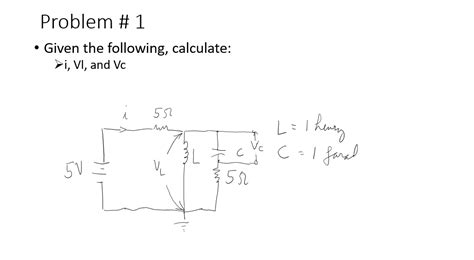 Problem # 1
• Given the following, calculate:
➢i, Vl, and Vc
i
5Ω
5V
VL
L
C
Vc
5Ω
L = 1 henry
C = 1 farad